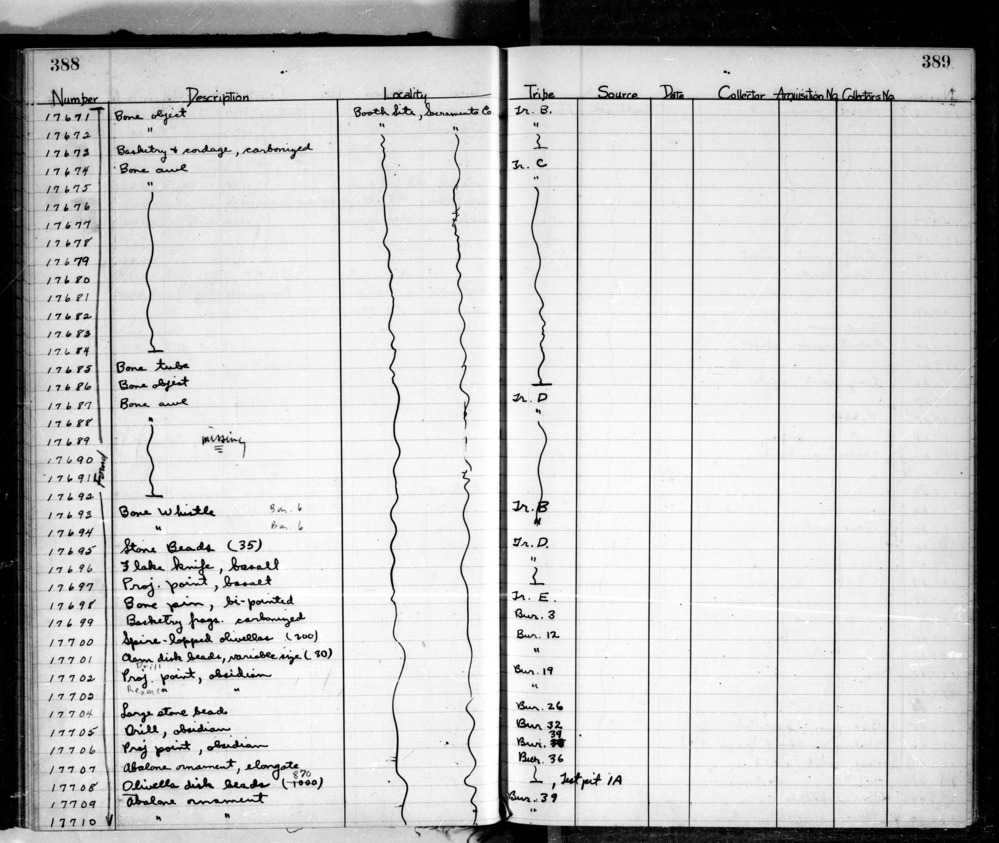 388 389
Number Description Locality Tribe Source Date Collector Acquisition No. Collectors No.
17671 Bone object Booth Site, Sacramento Co Tr. B.
17672 " " " "
17673 Basketry & cordage, carbonized
17674 Bone awl Tr. C
17675 " "
17676
17677
17678
17679
17680
17681
17682
17683
17684
17685 Bone tube
17686 Bone object
17687 Bone awl Tr. D
17688 " "
17689 missing
17690
17691 Found
17692
17693 Bone Whistle Bur. 6 Tr. B
17694 " Bur. 6 "
17695 Stone Beads (35) Tr. D.
17696 Flake knife, basalt "
17697 Proj. point, basalt
17698 Bone pin, bi-pointed Tr. E.
17699 Basketry frags. carbonized Bur. 3
17700 Spire-lopped olivellas (200) Bur. 12
17701 Clam disk beads, variable size (30) "
Drill
17702 Proj. point, obsidian Bur. 19
Reamer
17703 " " "
17704 Large stone bead Bur. 26
17705 Drill, obsidian Bur 32
39
17706 Proj point, obsidian Bur.
17707 Abalone ornament, elongate Bur. 36
870
17708 Olivella disk beads (1000) , Test pit 1A
17709 Abalone ornament Bur. 39
17710 " " "